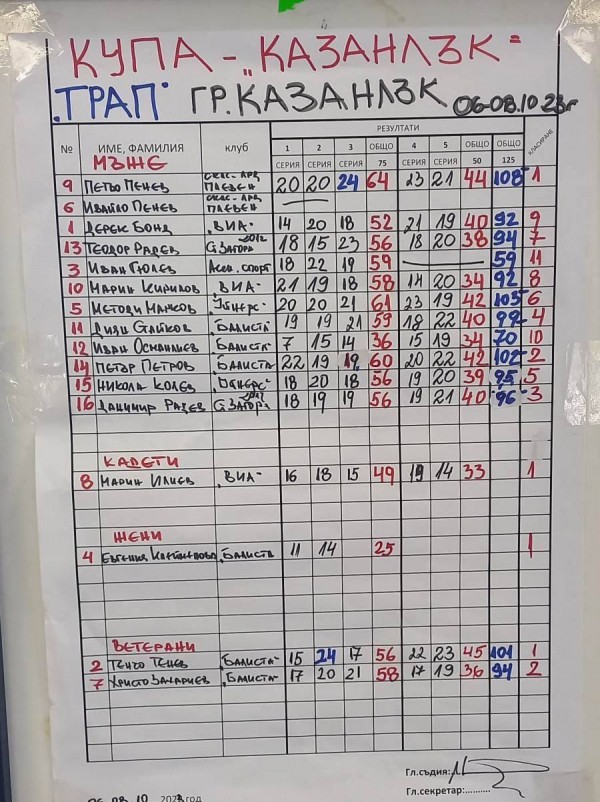 КУПА - „КАЗАНЛЪК"
„ТРАП" ГР. КАЗАНЛЪК 06-08.10 23г
РЕЗУЛТАТИ
№ ИМЕ, ФАМИЛИЯ клуб 1 СЕРИЯ 2 СЕРИЯ 3 СЕРИЯ ОБЩО 75 4 СЕРИЯ 5 СЕРИЯ ОБЩО 50 ОБЩО 125 КЛАСИРАНЕ
МЪЖЕ
9 ПЕТЬО ПЕНЕВ ПЛЕВЕН 20 20 24 64 23 21 44 108 1
6 ИВАЙЛО ПЕНЕВ ПЛЕВЕН —
1 ДЕРЕК БОНД „ВИА" 14 20 18 52 21 19 40 92 9
13 ТЕОДОР РАДЕВ С. ЗАГОРА 18 15 23 56 18 20 38 94 7
3 ИВАН ГЮЛЕВ АСЕН. СПОРТ 18 22 19 59 — 59 11
10 МАРИН КИРИЛОВ „ВИА" 21 19 18 58 14 20 34 92 8
5 МЕТОДИ 20 20 21 61 23 19 42 103 6
11 ДИЯН СТАЙКОВ „БАЛИСТА" 19 19 21 59 18 22 40 99 4
12 ИВАН ОСМАНЛИЕВ „БАЛИСТА" 7 15 14 36 15 19 34 70 10
14 ПЕТЪР ПЕТРОВ „БАЛИСТА" 22 19 19 60 20 22 42 102 2
15 НИКОЛА КОЛЕВ 18 20 18 56 19 20 39 95 5
16 ДАНИМИР РАДЕВ С. ЗАГОРА 18 19 19 56 19 21 40 96 3
КАДЕТИ
8 МАРИН ИЛИЕВ „ВИА" 16 18 15 49 19 14 33 1
ЖЕНИ
4 ЕВГЕНИЯ „БАЛИСТА 11 14 25 1
ВЕТЕРАНИ
2 ТЕНЧО ТЕНЕВ „БАЛИСТА" 15 24 17 56 22 23 45 101 1
7 ХРИСТО ЗАХАРИЕВ „БАЛИСТА" 17 20 21 58 17 19 36 94 2
Гл.съдия:
Гл.секретар:..........
06-08.10 2023 год